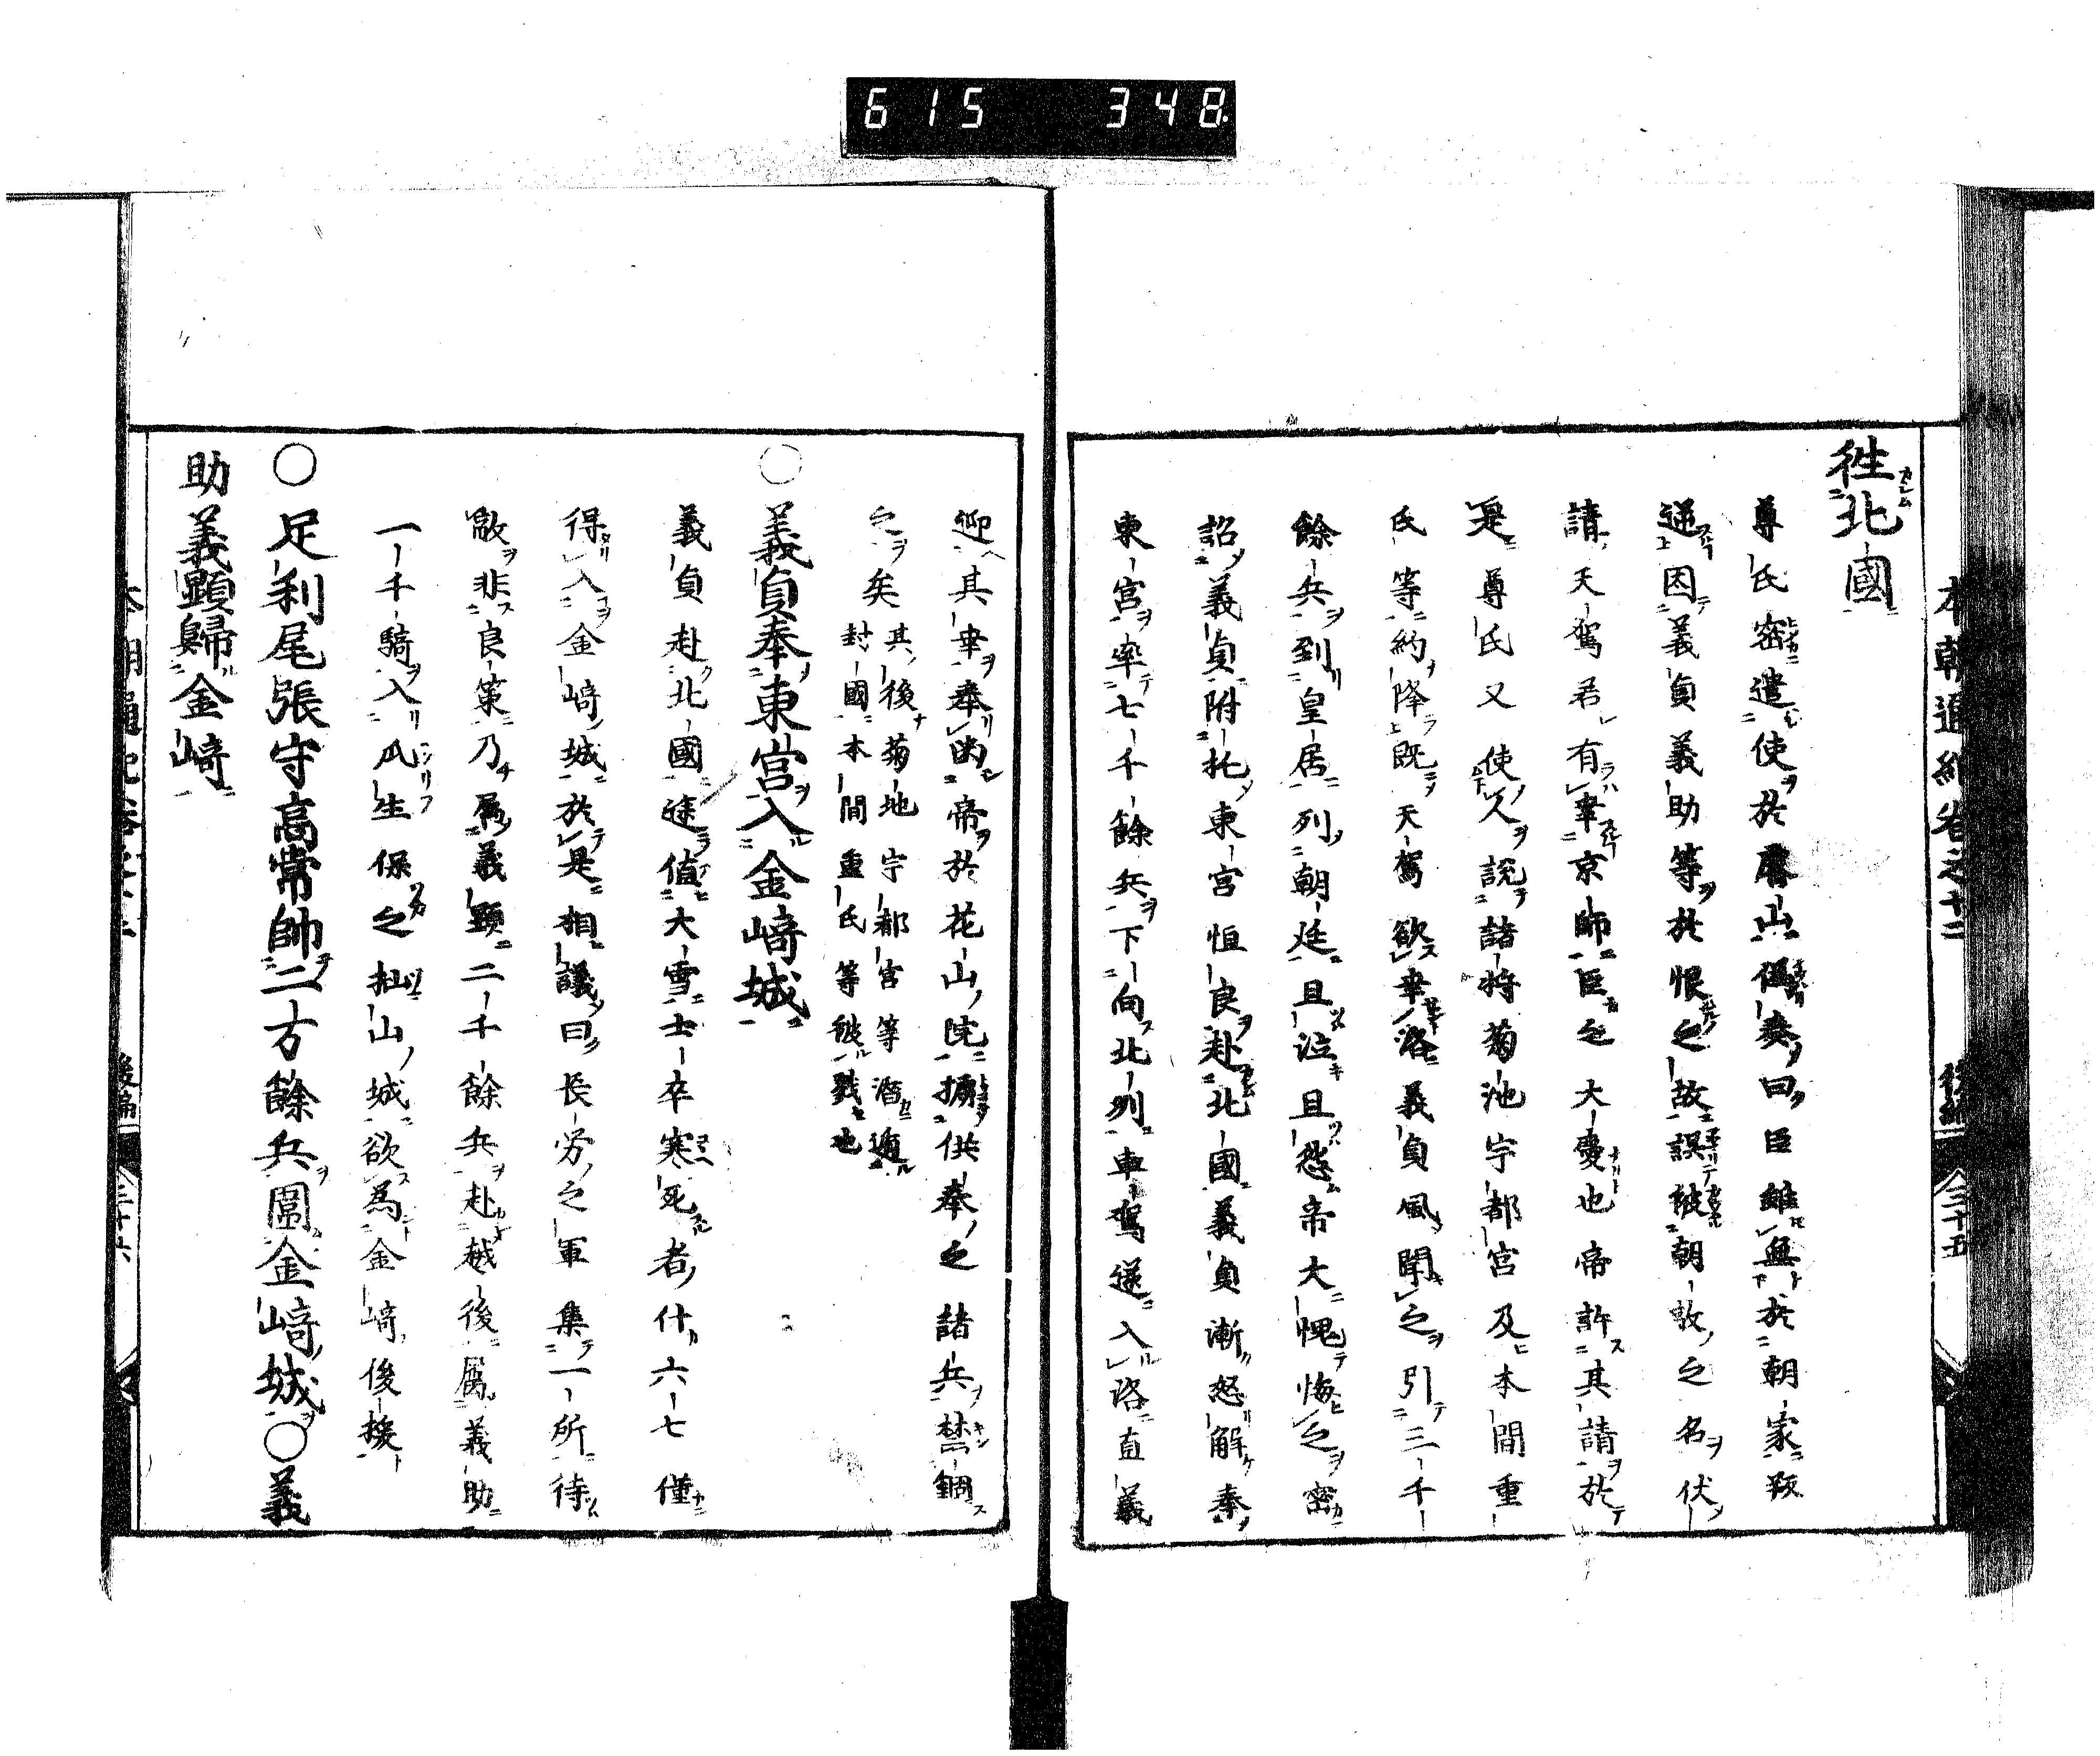 615 348
本朝通紀卷之十二 後編 三十五
徃北國
尊氏密遣使於叡山僞奏曰臣雖無於朝家叛
逆因義貞義助等於恨之故誤被朝敵之名伏
請天駕若有幸京師臣之大慶也帝許其請於
是尊氏又使人説諸將菊池宇都宮及本間重
氏等約降既天駕欲幸洛義貞風聞之引三千
餘兵到皇居列朝廷且泣且怨帝大愧悔之密
詔義貞附托東宮恒良赴北國義貞漸怒解奉
東宮率七千餘兵下向北列車駕遂入洛直義
迎其幸奉幽帝於花山院擄供奉之諸兵禁錮
之矣其後菊地宇都宮等潛遁
封國本間重氏等被戮也
○義貞奉東宮入金﨑城
義貞赴北國途值大雪士卒寒死者什六七僅
得入金﨑城於是相議曰長勞之軍集一所待
敵非良策乃屬義顕二千餘兵赴越後屬義助
一千騎入瓜生保之杣山城欲為金﨑後援
○足利尾張守高常帥二万餘兵圍金﨑城○義
助義顕歸金﨑
後編 三十六